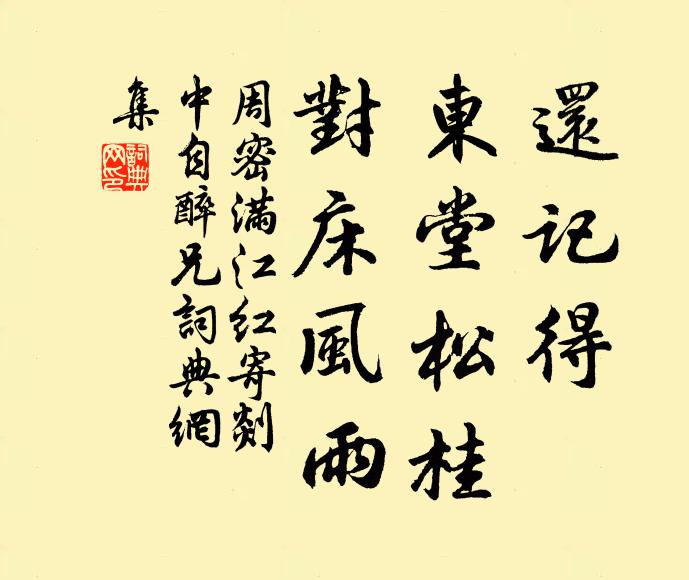 還記得
東堂松桂
對床風雨
周密滿江紅寄剡
中自醉兄詞典網
集
詞典
网印